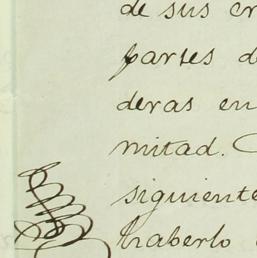 de sus
partes
deras en
mitad.
siguiente
haberlo